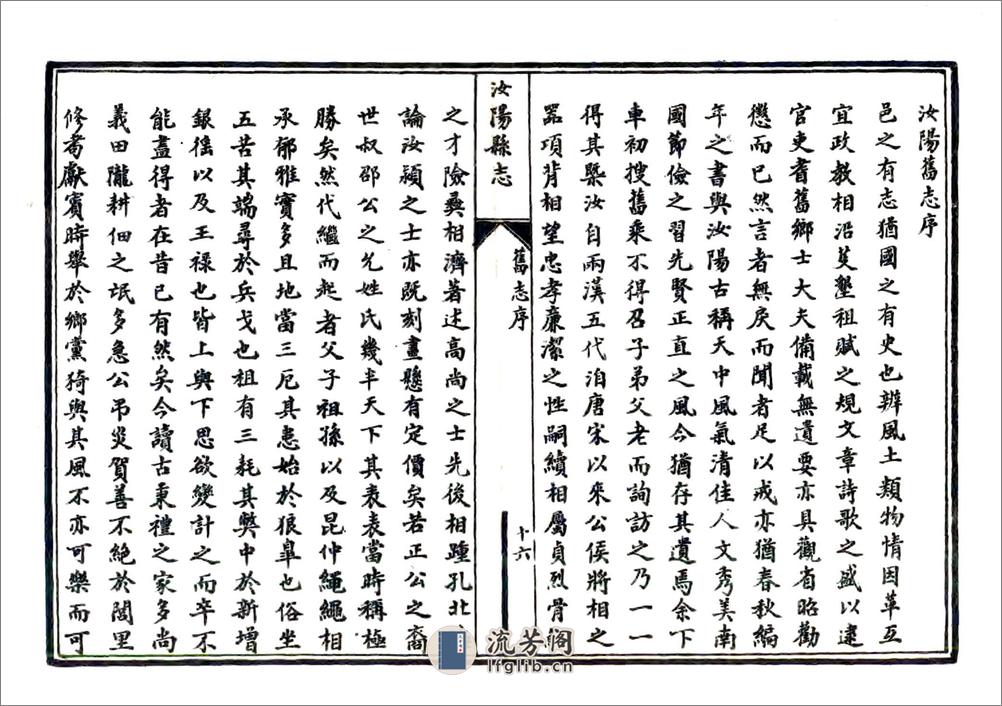 汝陽舊志序
邑之有志猶國之有史也辨風土類物情因革互
宜政教相沿芟墾租賦之規文章詩歌之盛以逮
官吏耆舊鄉士大夫備載無遺要亦具觀省昭勸
懲而已然言者無戾而聞者足以戒亦猶春秋編
年之書與汝陽古稱天中風氣清佳人文秀美南
國節儉之習先賢正直之風今猶存其遺焉余下
車初搜舊乘不得召子弟父老而詢訪之乃一一
得其槩汝自兩漢五代洎唐宋以來公侯將相之
器項背相望忠孝廉潔之性嗣續相屬貞烈骨
汝陽縣志
舊志序
十六
之才險彝相濟著述高尚之士先後相踵孔北
論汝潁之士亦既刻畫懸有定價矣若正公之裔
世叔邵公之允姓氏幾半天下其表表當時稱極
勝矣然代繼而起者父子祖孫以及昆仲繩繩相
承郁雅實多且地當三厄其患始於狼臯也俗坐
五苦其端尋於兵戈也租有三耗其弊中於新增
銀徭以及王祿也皆上與下思欲變計之而卒不
能盡得者在昔已有然矣今讀古秉禮之家多尚
義田隴耕佃之氓多急公弔災賀善不絕於閭里
修耈獻賓時舉於鄉黨猗與其風不亦可樂而可
流芳阁
lfglib.cn